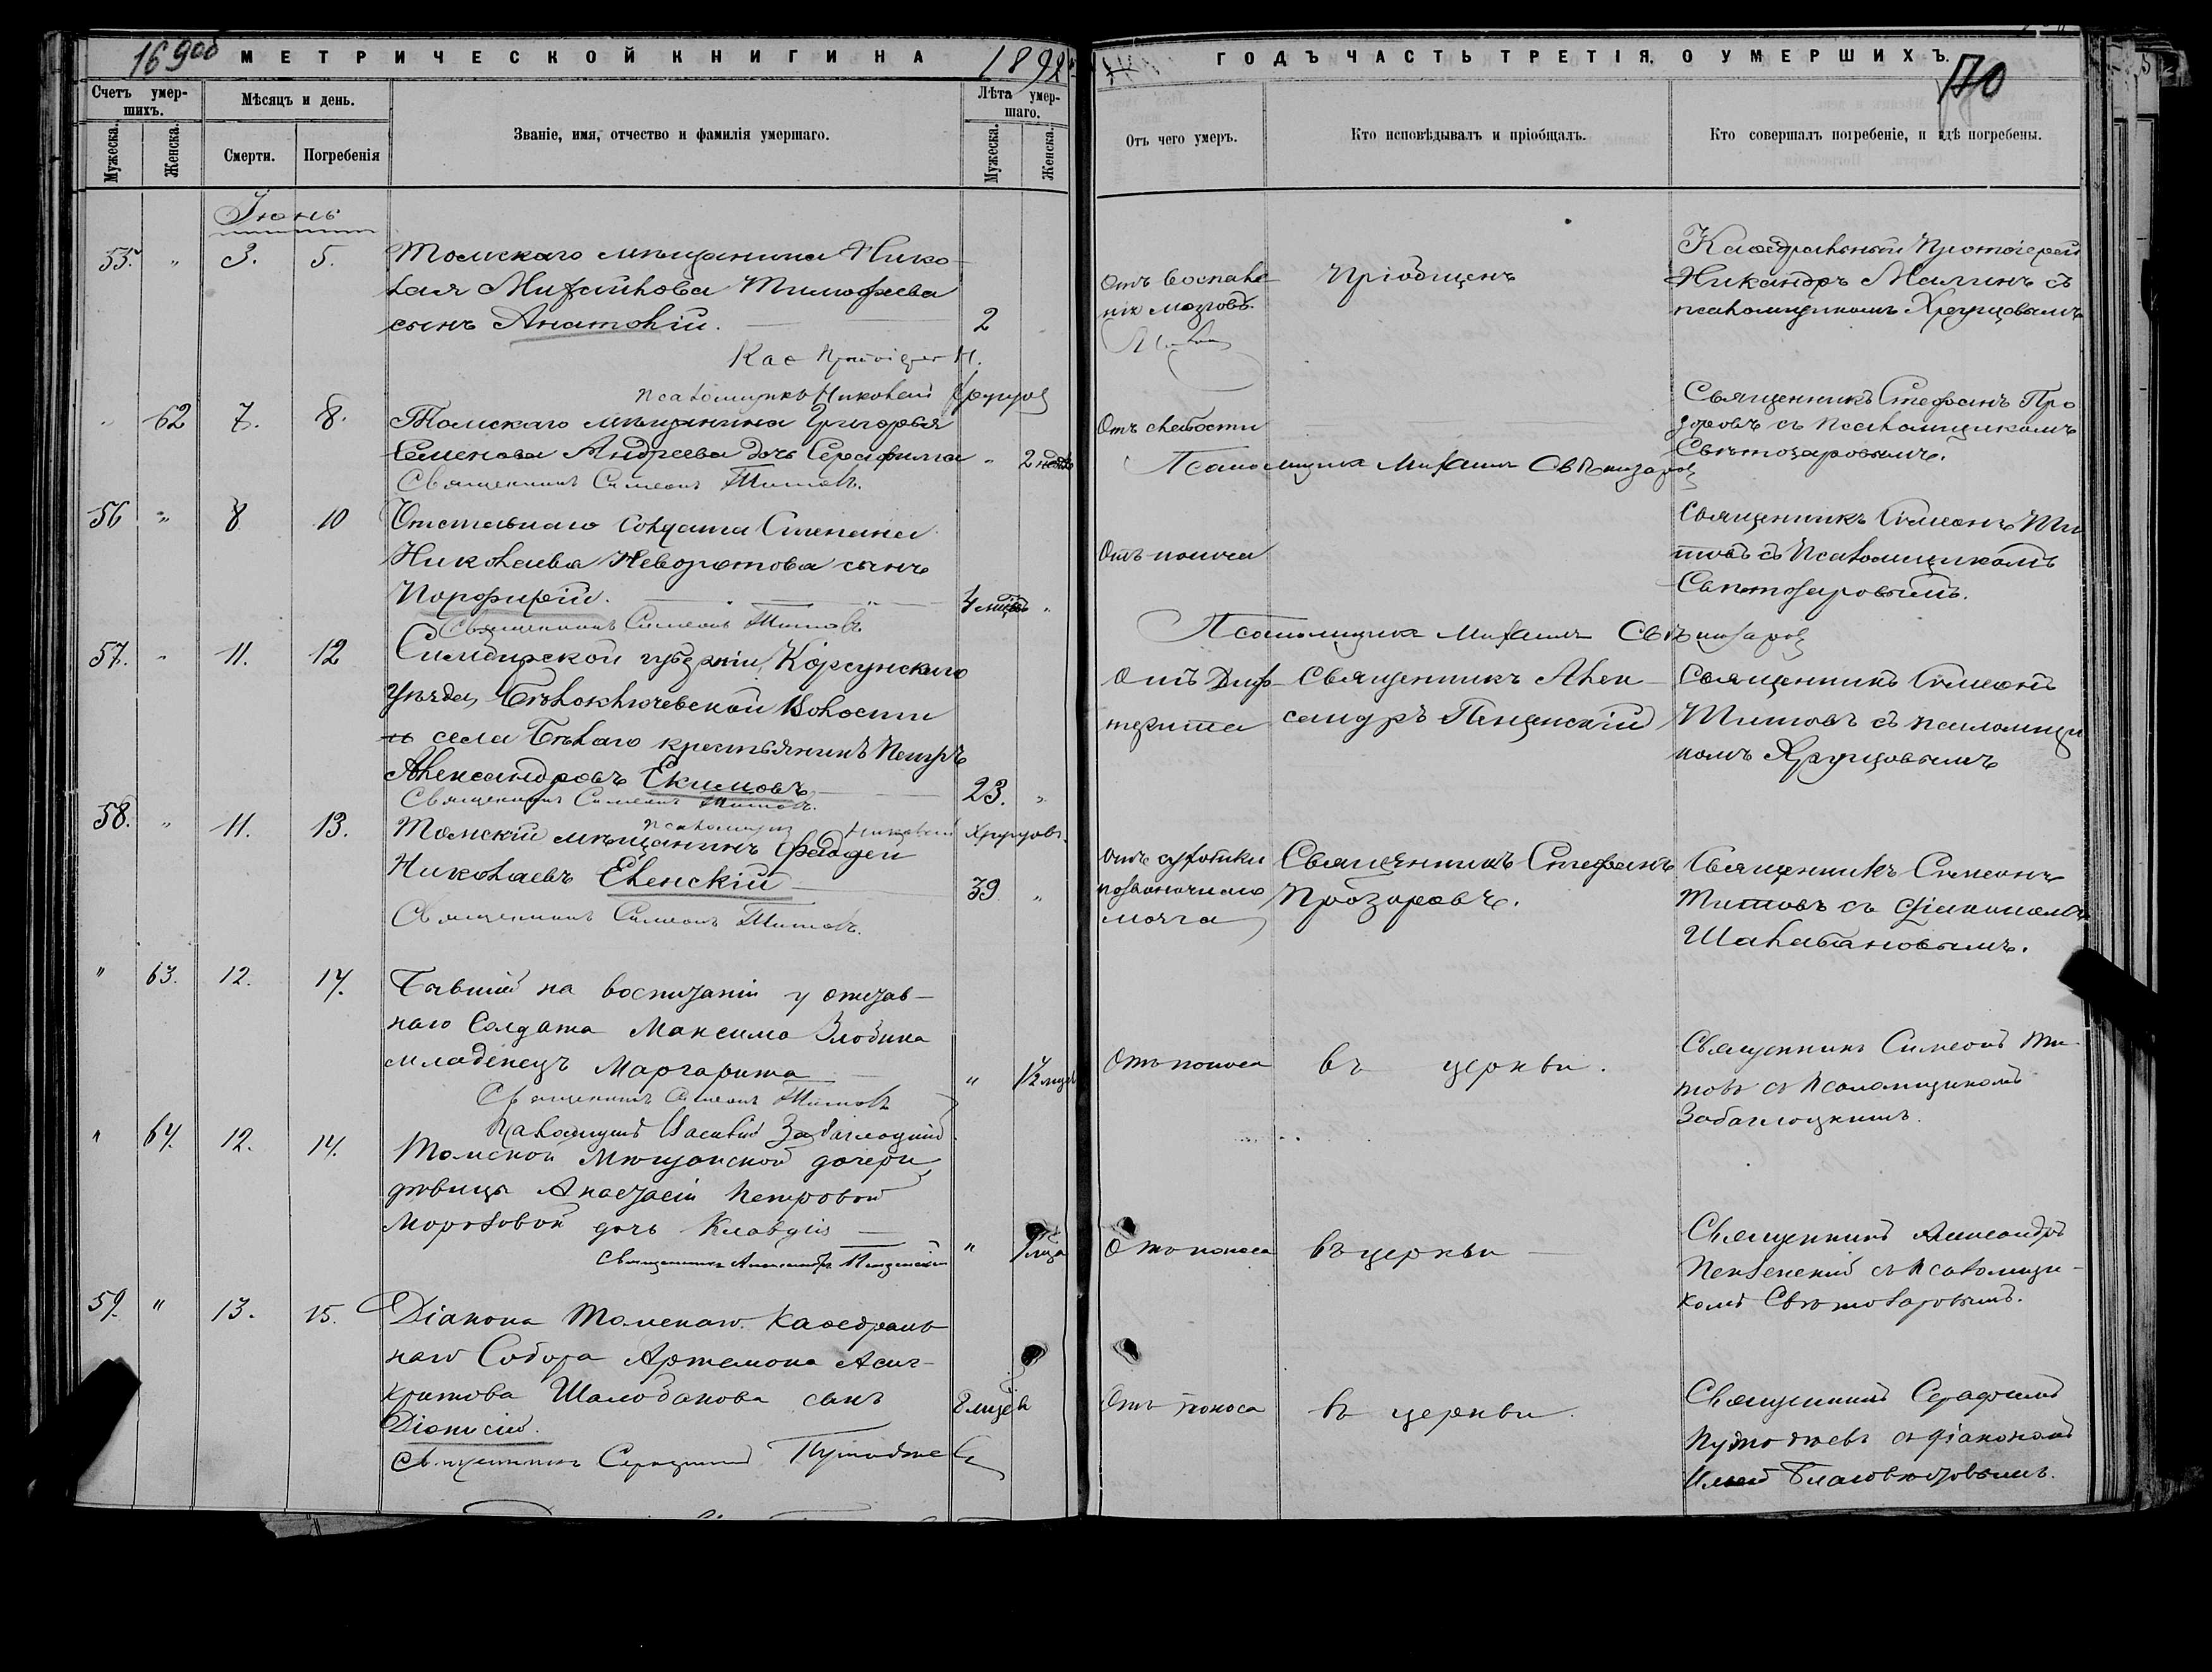 169об МЕТРИЧЕСКОЙ КНИГИ НА 189
ГОДЪ ЧАСТЬ ТРЕТІЯ, О УМЕРШИХЪ.
170
Счетъ умер-
шихъ.
Мужеска.
Женска.
Мѣсяцъ и день.
Смерти.
Погребенія
Званіе, имя, отчество и фамилія умершаго.
Лѣта умер-
шаго.
Мужеска.
Женска.
Отъ чего умеръ.
Кто исповѣдывалъ и пріобщалъ.
Кто совершалъ погребеніе, и гдѣ погребены.
Іюнь
55. " 3. 5.
Томскаго мѣщанина Нико-
лая Михайлова Тимофеева
сынъ Анатолій. 2
Отъ воспале-
нія мозговъ.
Пріобщенъ
Каѳедральный Протоіерей
Никандръ Малинъ съ
псаломщикомъ Хрущовымъ
Псаломщикъ Николай Хрущов
" 62 7. 8.
Томскаго мѣщанина Григорья
Семенова Андреева дочь Серафима " 2 недѣл
Священникъ Симеонъ Титовъ.
Отъ слабости
Псаломщикъ Михаилъ Свѣтозаровъ
Священникъ Стефанъ Про
зоровъ съ псаломщикомъ
Свѣтозаровымъ.
56 " 8 10
Отставнаго солдата Степана
Николаева Неворотова сынъ
Порфирій. 4 мѣся "
Священникъ Симеонъ Титовъ
Отъ поноса
Псаломщикъ Михаилъ Свѣтозаровъ
Священникъ Симеонъ Ти
товъ съ Псаломщикомъ
Свѣтозаровымъ.
57. " 11. 12
Симбирской губерніи, Корсунскаго
уѣзда, Бѣлоключевской Волости
села Бѣлаго крестьянинъ Петръ
Александровъ Екимовъ 23. "
Священникъ Симеонъ Титовъ.
Псаломщикъ Николай Хрущовъ.
Отъ Диф-
терита
Священникъ Алек-
сандръ Пензенскій
Священникъ Симеонъ
Титовъ съ псаломщи
комъ Хрущовымъ
58. " 11. 13.
Томскій мѣщанинъ Фаддей
Николаевъ Еленскій 39 "
Священникъ Симеонъ Титовъ.
Отъ сухотки
позвоночнаго
мозга
Священникъ Стефанъ
Прозоровъ.
Священникъ Симеонъ
Титовъ съ діакономъ
Шалабановымъ.
" 63. 12. 14.
Бывшій на воспитаніи у отстав-
наго солдата Максима Злобина
младенецъ Маргарита " 1½ мѣся
Священникъ Симеонъ Титовъ
Отъ поноса
въ церкви.
Священникъ Симеонъ Ти-
товъ съ псаломщикомъ
Заблоцкимъ.
" 64. 12. 14.
Томской мѣщанской дочери
дѣвицы Анастасіи Петровой
Морозовой дочь Клавдія "
Священникъ Александръ Пензенскій
Отъ поноса
въ церкви
Священникъ Александръ
Пензенскій съ псаломщи-
комъ Свѣтозаровымъ.
59. " 13. 15.
Діакона Томскаго Каѳедраль-
наго Собора Артемона Асиг-
критова Шалобанова сынъ
Діонисій.
Священникъ Серафимъ Путодѣевъ
Отъ поноса
въ церкви.
Священникъ Серафимъ
Путодѣевъ съ діакономъ